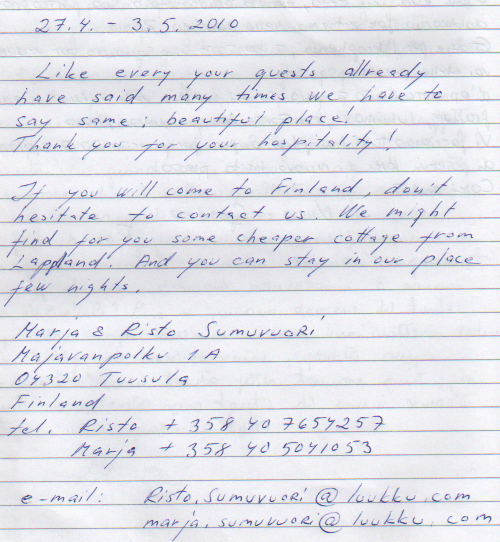 27.4. - 3.5. 2010
Like every your guests allready
have said many times we have to
say same; beautiful place!
Thank you for your hospitality!
If you will come to Finland, don't
hesitate to contact us. We might
find for you some cheaper cottage from
Lappland. And you can stay in our place
few nights.
Marja & Risto Sumuvuori
Majavanpolku 1 A
04320 Tuusula
Finland
tel. Risto + 358 40 7654257
Marja + 358 40 5041053
e-mail: Risto.Sumuvuori@luukku.com
marja.sumuvuori@luukku.com